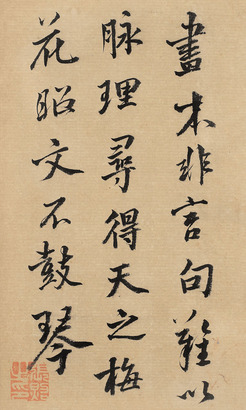 畫本非言句難以
脉理尋得天之梅
花昭文不鼓琴